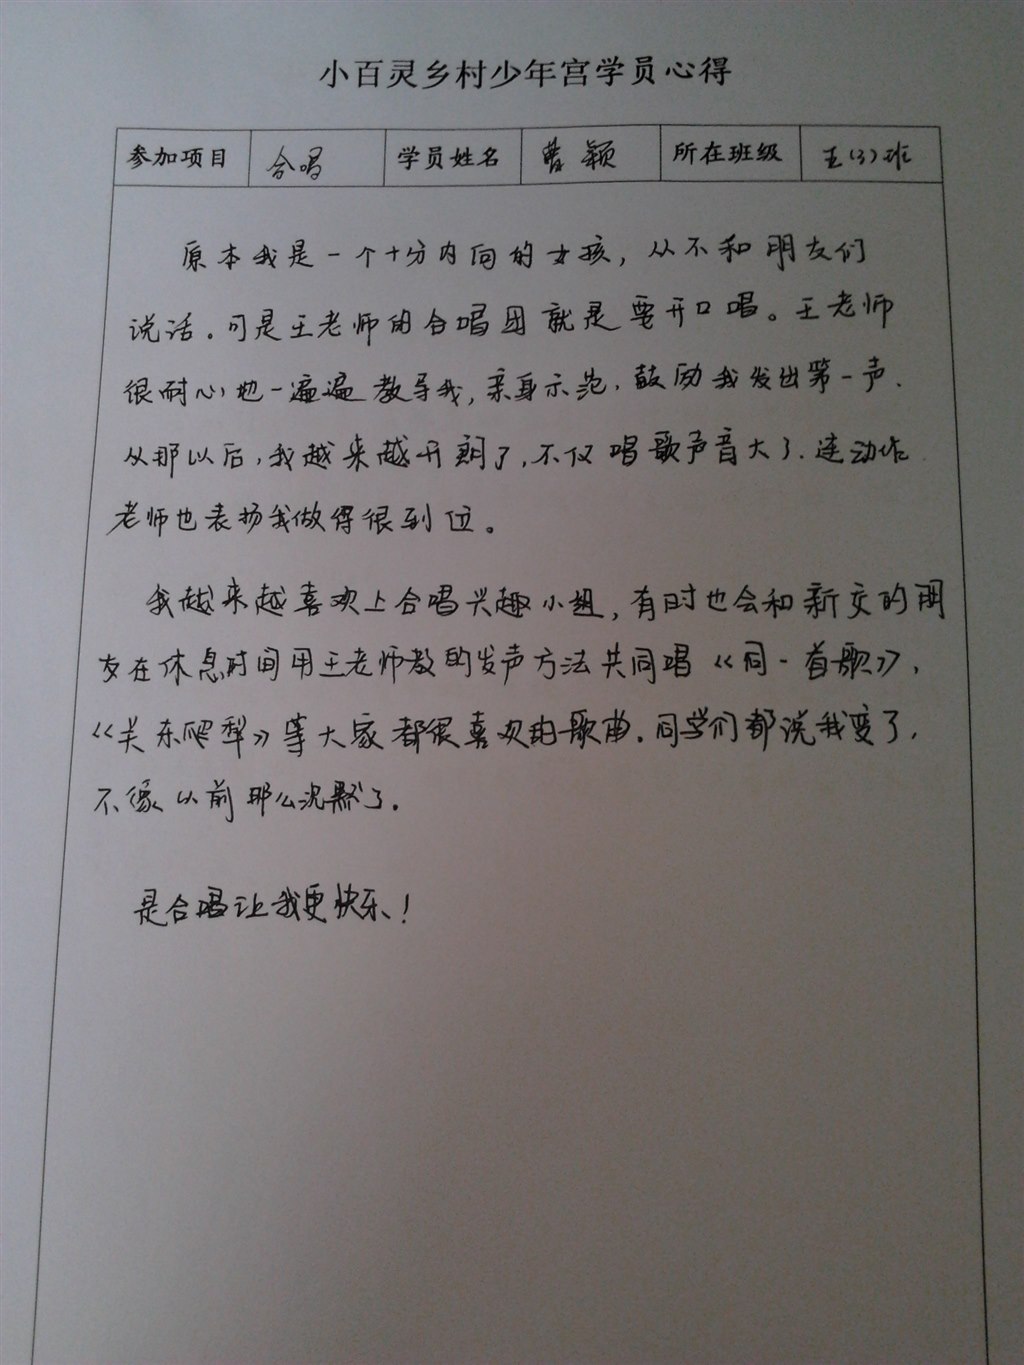 小百灵乡村少年宫学员心得
参加项目 合唱 学员姓名 曹颖 所在班级 五(3)班
原本我是一个十分内向的女孩，从不和朋友们
说话。可是王老师的合唱团就是要开口唱。王老师
很耐心地一遍遍教导我，亲身示范，鼓励我发出第一声.
从那以后，我越来越开朗了，不仅唱歌声音大了.连动作
老师也表扬我做得很到位。
我越来越喜欢上合唱兴趣小组，有时也会和新交的朋
友在休息时间用王老师教的发声方法共同唱《同一首歌》，
《关东爬犁》等大家都很喜欢的歌曲.同学们都说我变了，
不像以前那么沉默了.
是合唱让我更快乐！